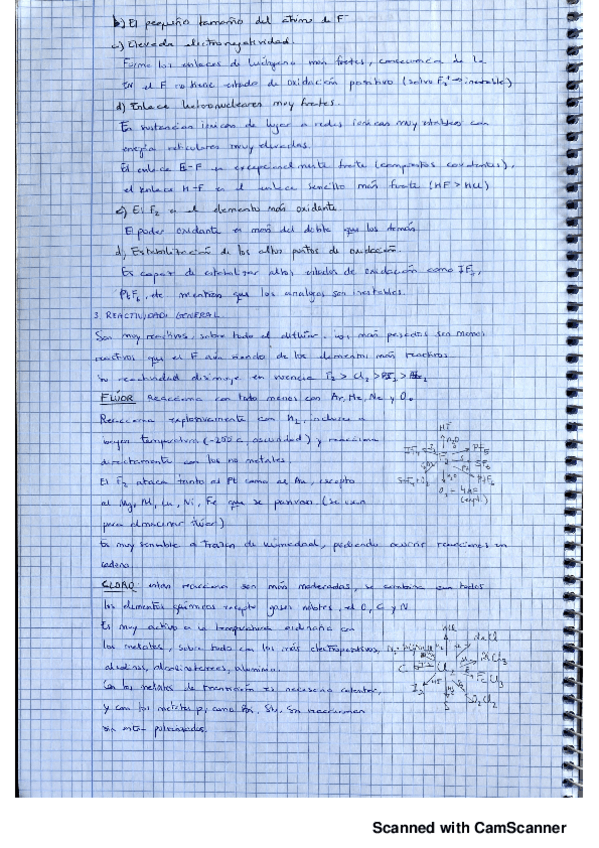 b) El pequeño tamaño del átomo de F
c) Elevada electronegatividad.
Forma los enlaces de hidrógeno más fuertes, consecuencia de la
EN el F no tiene estado de oxidación positivo (salvo
d) Enlaces heteronucleares muy fuertes.
En sustancias iónicas da lugar a redes iónicas muy estables con
energía reticulares muy elevadas.
El enlace E-F es excepcionalmente fuerte (compuestos covalentes),
el enlace H-F es el enlace sencillo más fuerte (HF > HCl)
c) El F2 es el elemento más oxidante
El poder oxidante es más del doble que los demás
d) Estabilización de los altos puntos de oxidación.
Es capaz de estabilizar altos estados de oxidación como IF7,
PtF6, etc mientras que los análogos son inestables.
3. REACTIVIDAD GENERAL
Son muy reactivos, sobre todo el los más pesados son menos
reactivos que el F aún siendo de los elementos más reactivos
La reactividad disminuye en F2 > Cl2 >
FLÚOR Reacciona con todo menos con Ar, He, Ne y O2
Reacciona explosivamente con H2, incluso a
temperatura (-255°C, oscuridad) y reacciona
directamente con los no metales.
El F2 ataca tanto al Pt como al Au, excepto
al Mg, Al, Cu, Ni, Fe que se pasivan (se usan
para almacenar flúor)
Es muy sensible a trazas de humedad, pudiendo ocurrir reacciones en
cadena.
HF
CLORO estas reacciones son más moderadas, se combina con todos
los elementos químicos excepto gases nobles, el O, C y N
Es muy activo a la temperatura ordinaria con
los metales, sobre todo con los más electropositivos,
alcalinos, alcalinotérreos, aluminio.
Con los metales de transición es necesario calentar,
y con los metales p, como Sn reaccionan
sin pulverizados.
C Cl2 FeCl3
I2 SO2Cl2
Scanned with CamScanner